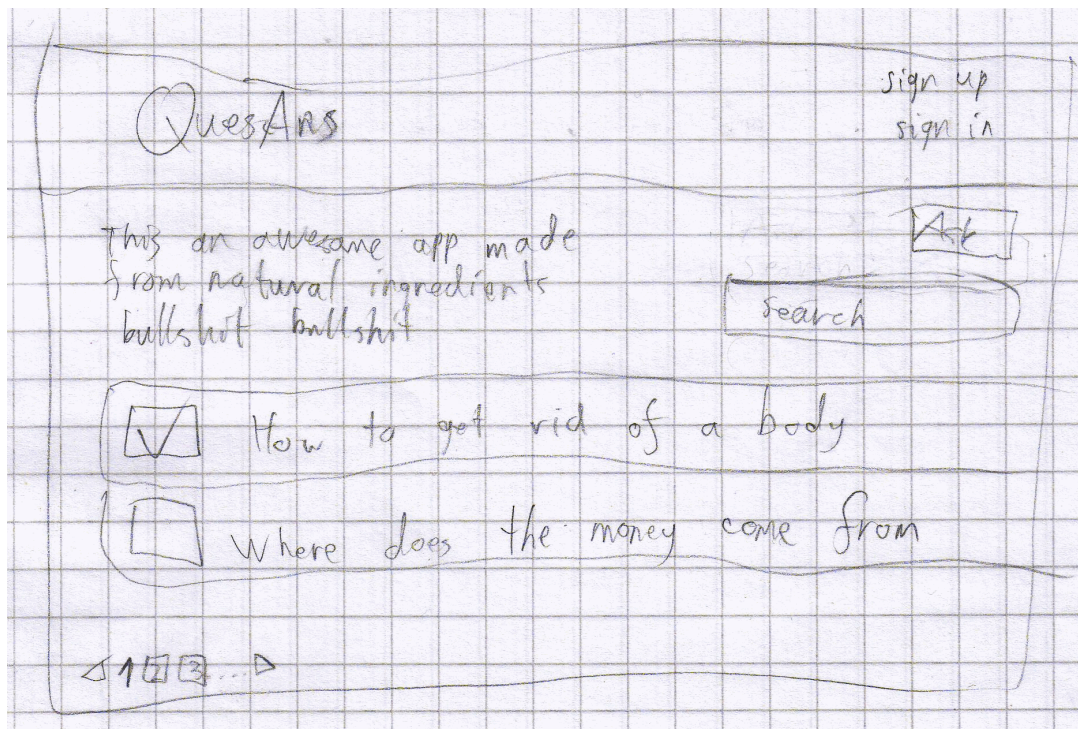 QuesAns
sign up
sign in
This an awesome app made
from natural ingredients
bullshot bullshit
Ask
search
How to get rid of a body
Where does the money come from
1 2 3 ....